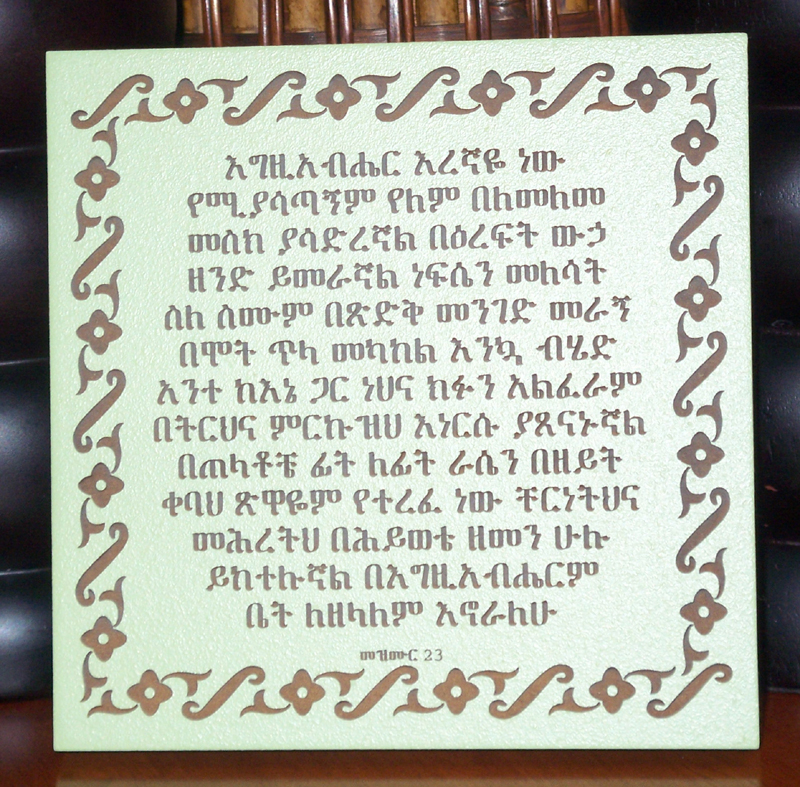 እግዚአብሔር እረኛዬ ነው
የሚያሳጣኝም የለም በለመለመ
መስክ ያሳድረኛል በዕረፍት ውኃ
ዘንድ ይመራኛል ነፍሴን መለሳት
ስለ ስሙም በጽድቅ መንገድ መራኝ
በሞት ጥላ መካከል እንኳ ብሄድ
አንተ ከእኔ ጋር ነህና ክፉን አልፈራም
በትርህና ምርኩዝህ እነርሱ ያጸናኑኛል
በጠላቶቼ ፊት ለፊት ራሴን በዘይት
ቀባህ ጽዋዬም የተረፈ ነው ቸርነትህና
መሕረትህ በሕይወቴ ዘመን ሁሉ
ይከተሉኛል በእግዚአብሔርም
ቤት ለዘላለም እኖራለሁ
መዝሙር 23